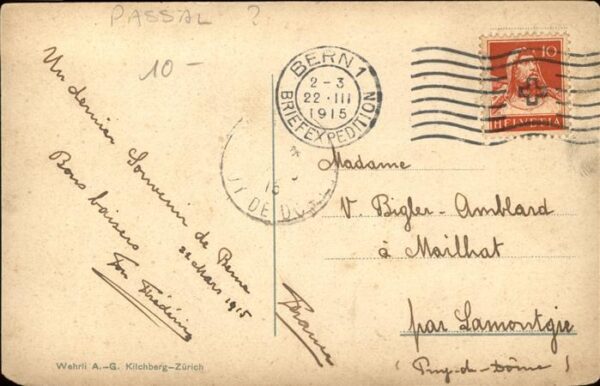 PASSAL ?
10 -
Un dernier Souvenir de Berne
22 Mars 1915
Bons baisers
Ton Frédéric
BERN 1
2-3
22.III
1915
BRIEFEXPEDITION
10
HELVETIA
15
Y DE DO
Madame
V. Bigler-Amblard
à Mailhat
par Lamontgie
(Puy-de-Dôme)
France
Wehrli A.-G. Kilchberg-Zürich